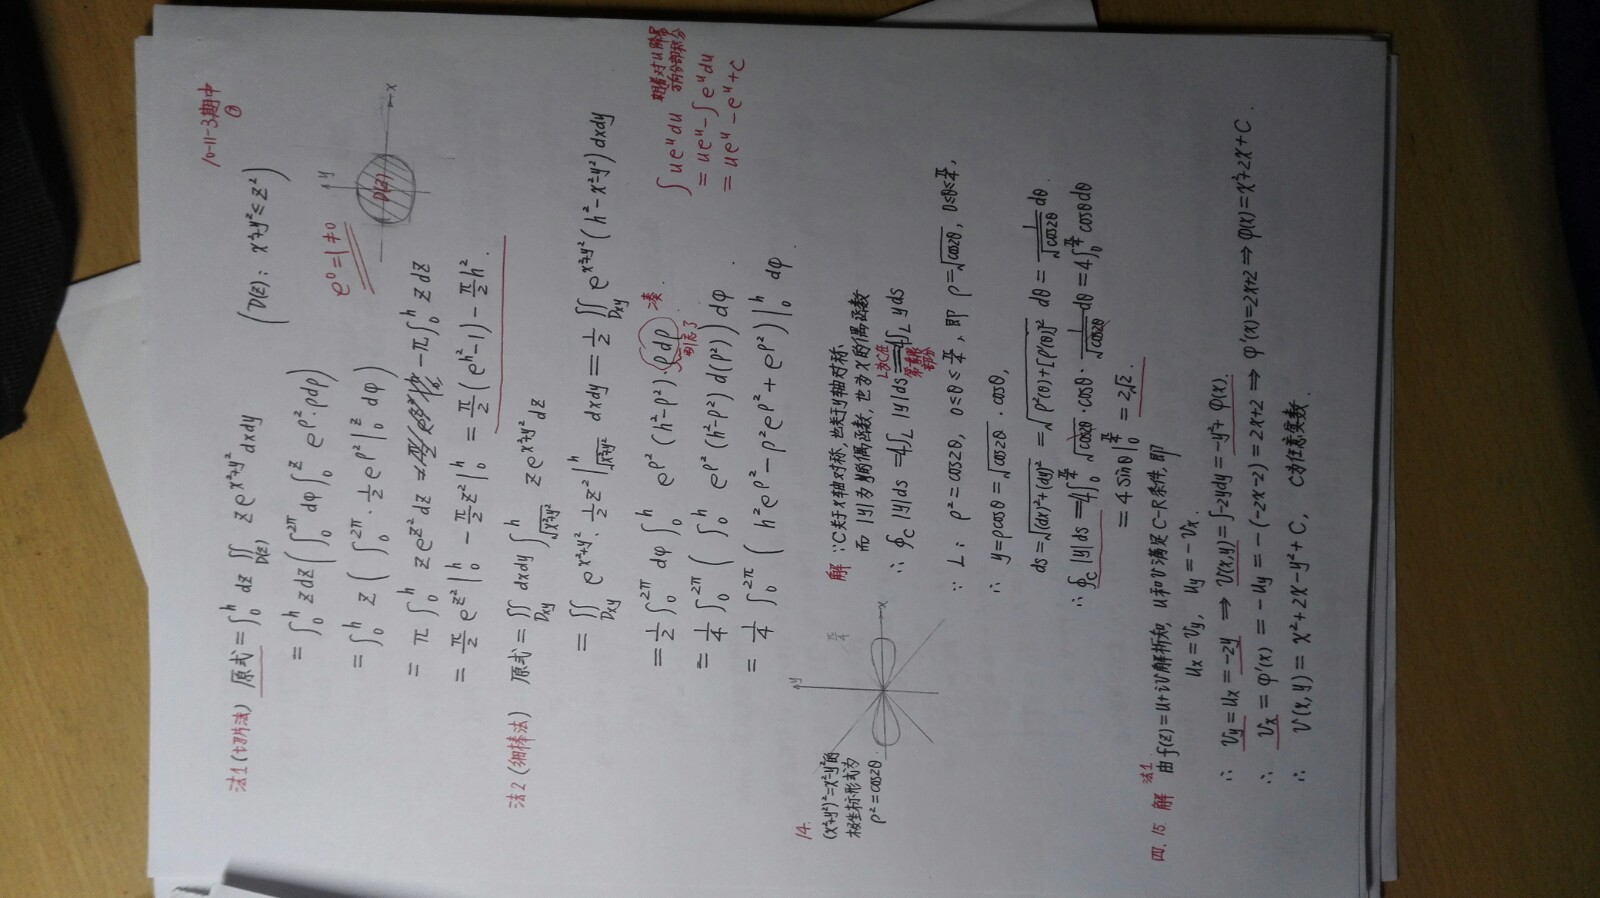 10-11-3期中
①
法1(切片法) 原式 = ∫₀ʰ dz ∬_{D(z)} z e^{x²+y²} dxdy (D(z): x²+y² ≤ z²)
= ∫₀ʰ z dz (∫₀^{2π} dφ ∫₀ᶻ e^{ρ²}·ρdρ)
e⁰=1≠0
= ∫₀ʰ z (∫₀^{2π}·½e^{ρ²}|₀ᶻ dφ)
y
D(z)
x
= π∫₀ʰ z e^{z²} dz - π∫₀ʰ z dz
= π/2 e^{z²}|₀ʰ - π/2 z²|₀ʰ = π/2(e^{h²}-1) - π/2 h².
法2(细棒法) 原式 = ∬_{Dxy} dxdy ∫_{√(x²+y²)}^h z e^{x²+y²} dz
= ∬_{Dxy} e^{x²+y²}·½z²|_{√(x²+y²)}^h dxdy = ½∬_{Dxy} e^{x²+y²}(h²-x²-y²)dxdy
= ½∫₀^{2π} dφ∫₀ʰ e^{ρ²}(h²-ρ²)·ρdρ. 凑
别忘了
= ¼∫₀^{2π}(∫₀ʰ e^{ρ²}(h²-ρ²)d(ρ²))dφ.
= ¼∫₀^{2π}(h²e^{ρ²}-ρ²e^{ρ²}+e^{ρ²})|₀ʰ dφ.
∫ue^u du
= ue^u-∫e^u du
= ue^u-e^u+C
14.
(x²+y²)²=x²-y²的
极坐标形式为
ρ²=cos2θ
y
x
π/4
解 ∵C关于x轴对称,也关于y轴对称,
而|y|为y的偶函数,也为x的偶函数
∴ ∮_C |y|ds = 4∫_L |y|ds = 4∫_L yds
L为C在
第一象限
部分
∵ L: ρ²=cos2θ, 0≤θ≤π/4, 即 ρ=√cos2θ, 0≤θ≤π/4,
∴ y=ρcosθ=√cos2θ·cosθ,
ds=√((dx)²+(dy)²)=√(ρ²(θ)+[ρ'(θ)]²) dθ = 1/√cos2θ dθ.
∴ ∮_C |y|ds=4∫₀^{π/4} √cos2θ·cosθ·1/√cos2θ dθ=4∫₀^{π/4} cosθdθ
= 4sinθ|₀^{π/4} = 2√2.
四. 15 解 法1 由f(z)=u+iv解析知, u和v满足C-R条件, 即
u_x=v_y, u_y=-v_x.
∴ v_y=u_x=-2y ⇒ v(x,y)=∫-2ydy=-y²+φ(x).
∴ v_x=φ'(x)=-u_y=-(-2x-2)=2x+2 ⇒ φ'(x)=2x+2 ⇒ φ(x)=x²+2x+C.
∴ v(x,y)=x²+2x-y²+C, C为任意实数.